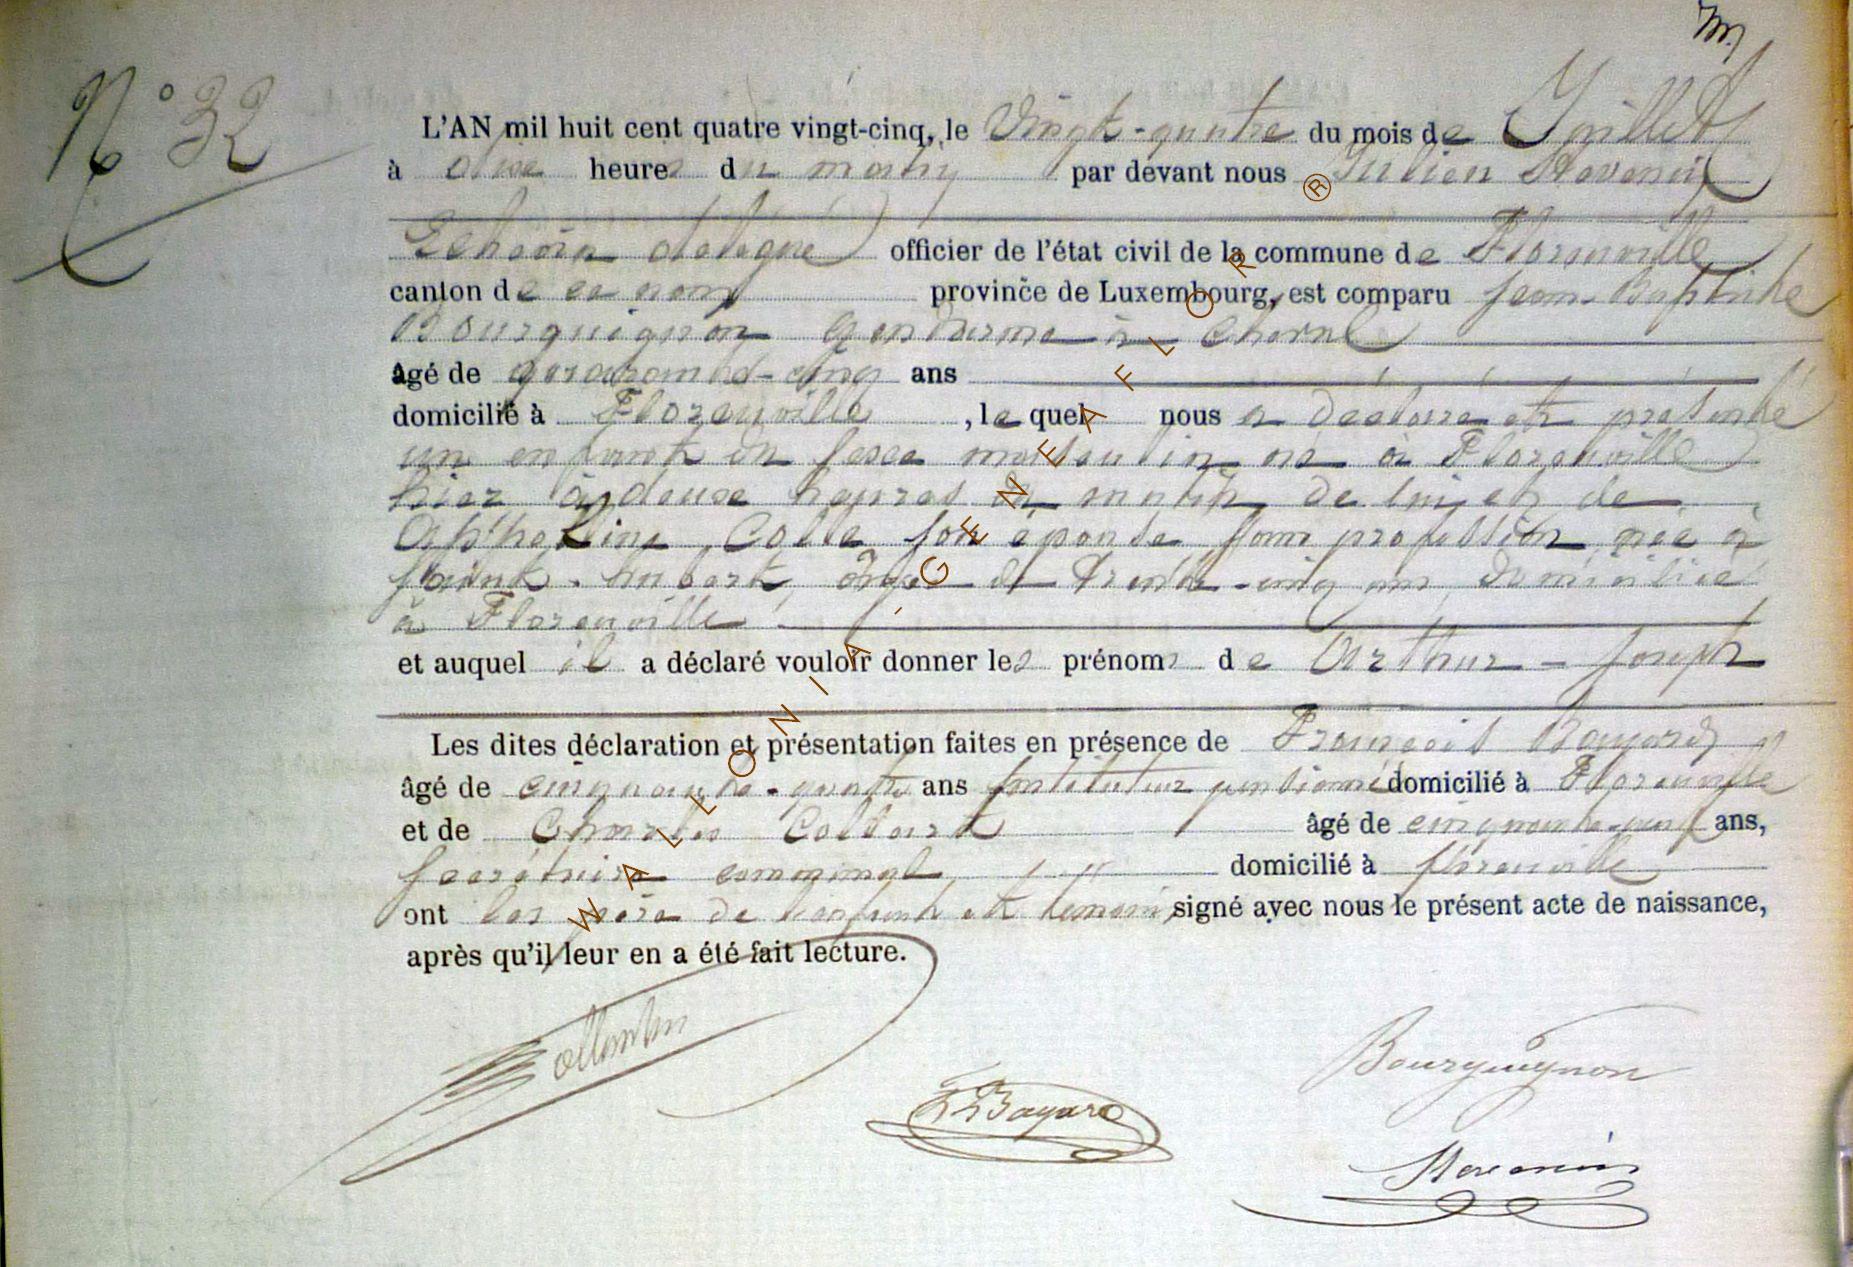 N° 32
L'AN mil huit cent quatre vingt-cinq, le Vingt-quatre du mois de Juillet
à heures du matin par devant nous Julien
Echevin délégué officier de l'état civil de la commune de Florenville
canton de ce nom province de Luxembourg, est comparu Jean-Baptiste
Bourguignon Gendarme à cheval
âgé de quarante-cinq ans
domicilié à Florenville, le quel nous a déclaré et présenté
un enfant du sexe masculin né à Florenville
hier à deux heures du matin de lui et de
son épouse sans profession née à
Saint-hubert, âgée de Trente-cinq ans, domiciliée
à Florenville
et auquel il a déclaré vouloir donner les prénoms de Arthur-Joseph
Les dites déclaration et présentation faites en présence de François Bayard
âgé de cinquante-quatre ans Instituteur pensionné domicilié à Florenville
et de Charles âgé de ans,
secrétaire communal domicilié à florenville
ont les père de l'enfant et témoins signé avec nous le présent acte de naissance,
après qu'il leur en a été fait lecture.
Bourguignon
Bayard
WALLONIA-GENEAFLOR ®